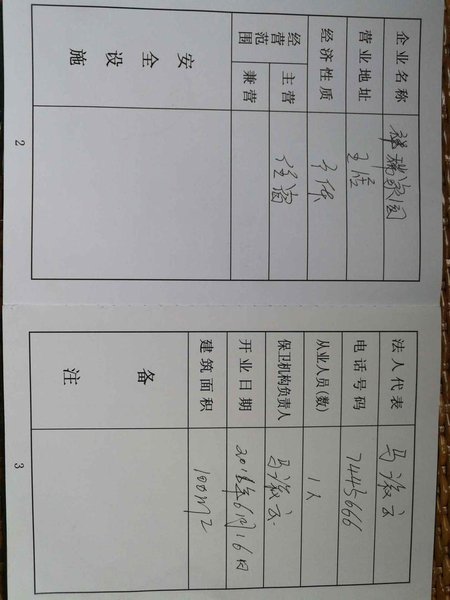 企业名称 祥瑞家园
营业地址
经济性质 个体
经营范围 主营 住宿
兼营
安全设施
2
法人代表 马淑云
电话号码 7445666
从业人员(数) 1人
保卫机构负责人 马淑云
开业日期 2018年6月16日
建筑面积 100m2
备注
3